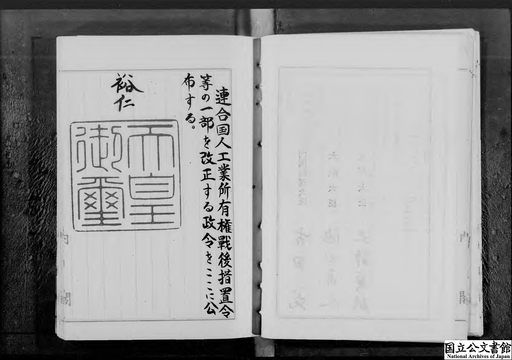 連合国人工業所有権戦後措置令
等の一部を改正する政令をここに公
布する。
裕仁
天皇
御璽
内閣
国立公文書館
National Archives of Japan